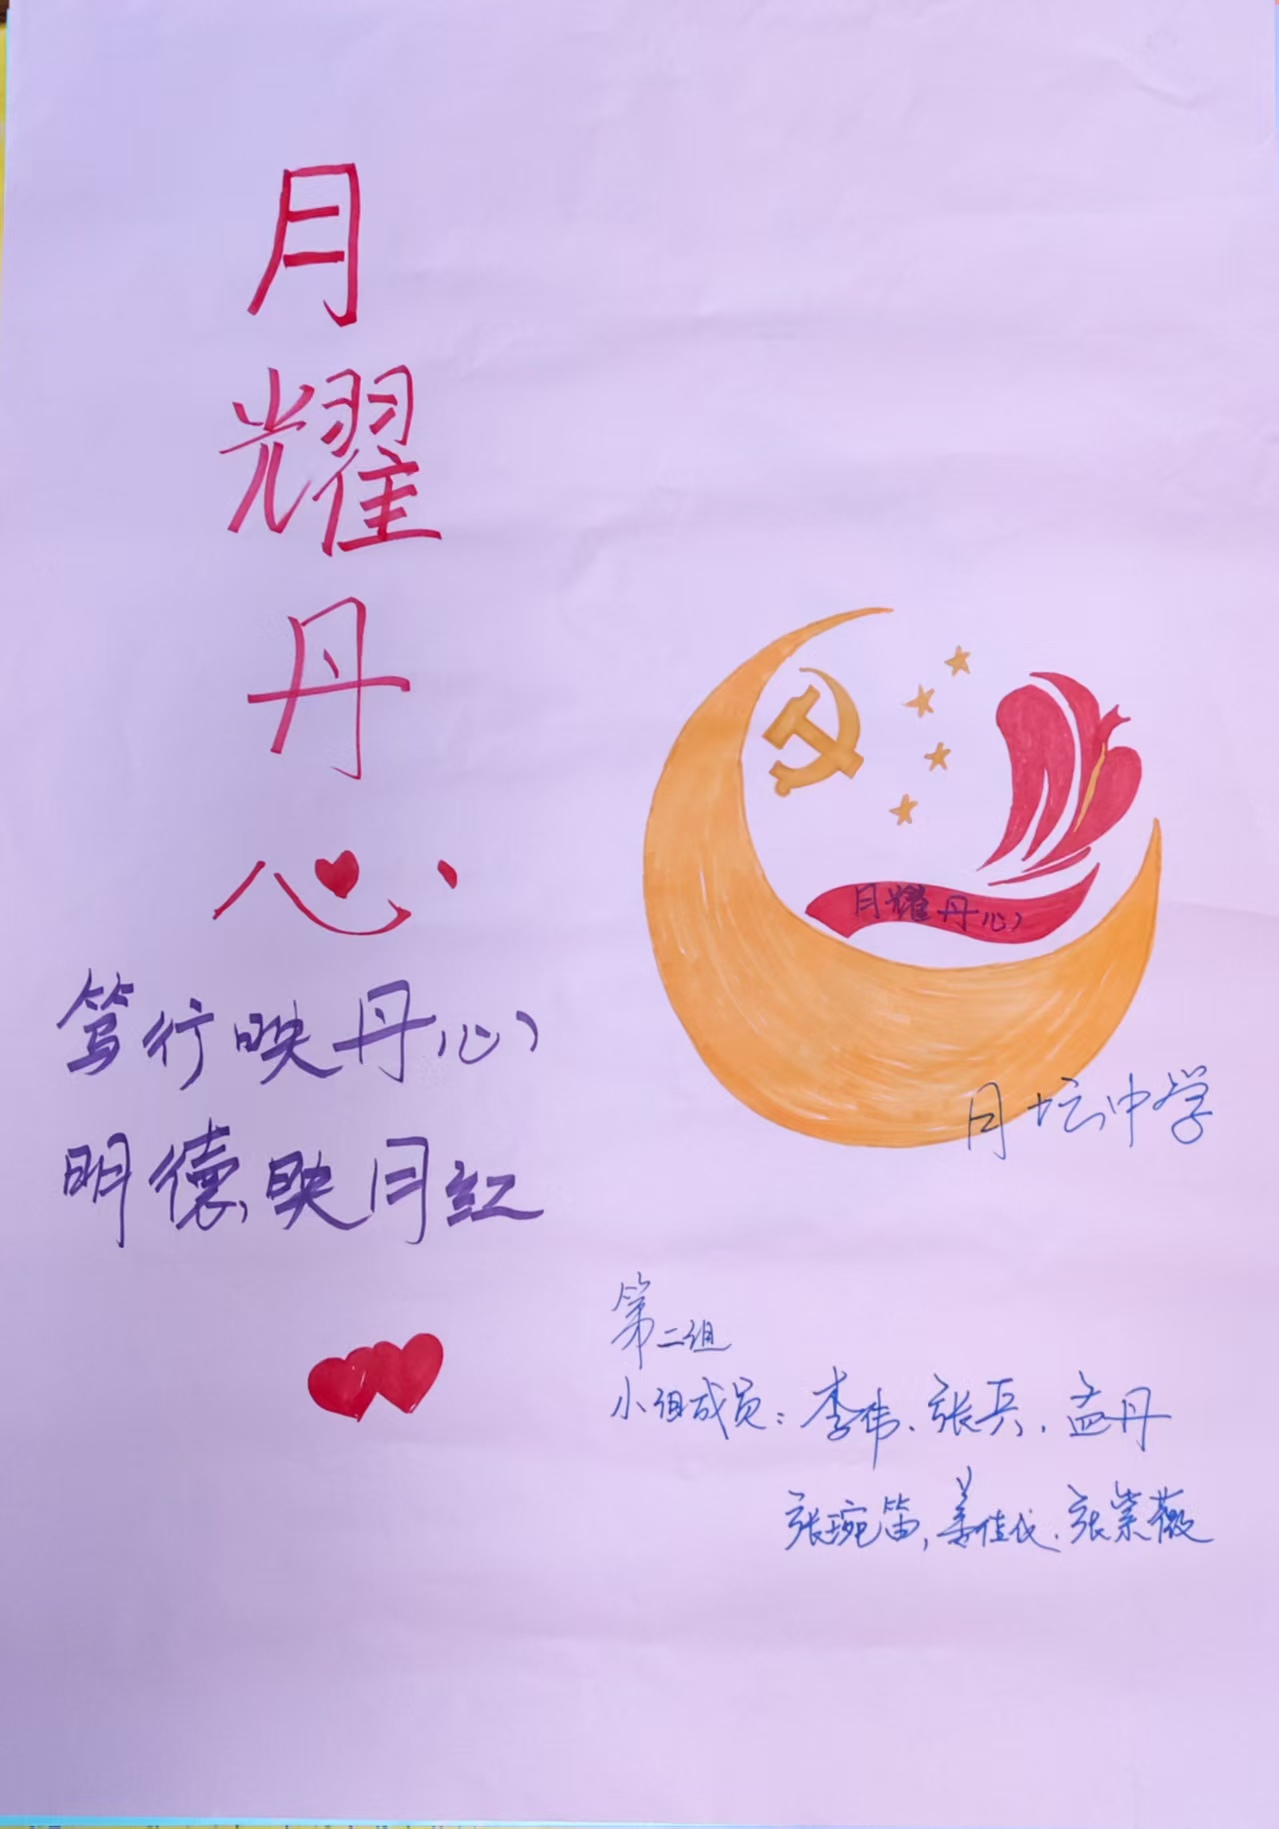 月耀丹心
笃行映丹心
明德映月红
月耀丹心
月坛中学
第二组
小组成员：李伟、张兵、孟丹
张琬笛，姜佳伐、张紫薇